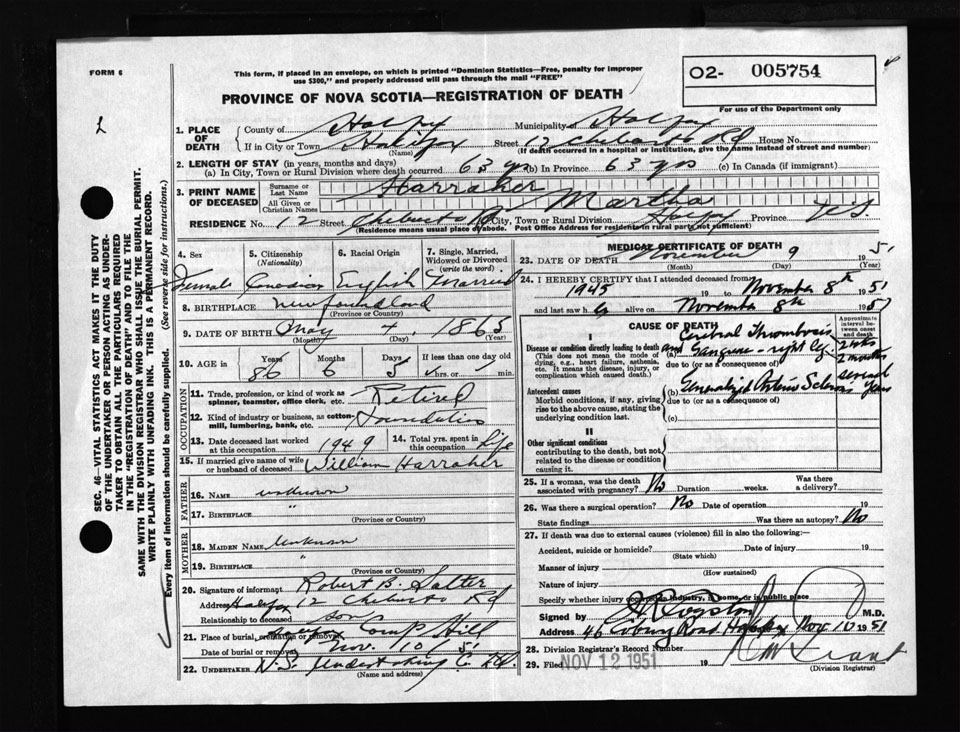 FORM 6
This form, if placed in an envelope, on which is printed "Dominion Statistics—Free, penalty for improper
use $300," and properly addressed will pass through the mail "FREE"
02- 005754
For use of the Department only
PROVINCE OF NOVA SCOTIA—REGISTRATION OF DEATH
1. PLACE OF DEATH { County of Halifax Municipality Halifax
If in City or Town Halifax (Name) Street 12 Chebucto Rd House No.
(If death occurred in a hospital or institution, give the name instead of street and number)
2. LENGTH OF STAY (in years, months and days)
(a) In City, Town or Rural Division where death occurred 63 yrs (b) In Province 63 yrs (c) In Canada (if immigrant)
3. PRINT NAME OF DECEASED { Surname or Last Name Harraher
All Given or Christian Names Martha
RESIDENCE No. 12 Street Chebucto Rd City, Town or Rural Division Halifax Province N.S.
(Residence means usual place of abode. Post Office Address for residents in rural parts not sufficient)
4. Sex 5. Citizenship (Nationality) 6. Racial Origin 7. Single, Married, Widowed or Divorced (write the word)
Female Canadian English Married
8. BIRTHPLACE Newfoundland
(Province or Country)
9. DATE OF BIRTH May 4, 1865
(Month) (Day) (Year)
10. AGE in { Years Months Days If less than one day old
86 6 5 hrs. or min.
OCCUPATION
11. Trade, profession, or kind of work as spinner, teamster, office clerk, etc. Retired
12. Kind of industry or business, as cotton-mill, lumbering, bank, etc.
13. Date deceased last worked at this occupation 1949 14. Total yrs. spent in this occupation Life
15. If married give name of wife or husband of deceased William Harraher
FATHER
16. NAME unknown
17. BIRTHPLACE "
(Province or Country)
MOTHER
18. MAIDEN NAME Unknown
19. BIRTHPLACE "
(Province or Country)
20. Signature of informant Robert B. Salter
Address Halifax 12 Chebucto Rd
Relationship to deceased son
21. Place of burial, cremation or removal Camp Hill
Date of burial or removal Nov. 10 51
22. UNDERTAKER N.S. Undertaking Co. Ltd.
(Name and address)
MEDICAL CERTIFICATE OF DEATH
23. DATE OF DEATH November 9 1951
(Month) (Day) (Year)
24. I HEREBY CERTIFY that I attended deceased from
1945 19 to November 8th 1951
and last saw h alive on November 8th 1951
CAUSE OF DEATH
Approximate interval between onset and death
I
Disease or condition directly leading to death (a) Cerebral Thrombosis
and Gangrene - right leg 2 months
(This does not mean the mode of dying, e.g., heart failure, asthenia, etc. It means the disease, injury, or complication which caused death.)
due to (or as a consequence of)
Antecedent causes (b) Generalized Arterio Sclerosis several years
Morbid conditions, if any, giving rise to the above cause, stating the underlying condition last.
due to (or as a consequence of)
(c)
II
Other significant conditions
contributing to the death, but not related to the disease or condition causing it.
25. If a woman, was the death associated with pregnancy? No Duration weeks. Was there a delivery?
26. Was there a surgical operation? No Date of operation 19
State findings Was there an autopsy? No
27. If death was due to external causes (violence) fill in also the following:—
Accident, suicide or homicide? Date of injury 19
(State which)
Manner of injury
(How sustained)
Nature of injury
Specify whether injury occurred in industry, home, or in public place
Signed by Royston M.D.
Address 46 Coburg Road Halifax Nov 10 1951
28. Division Registrar's Record Number
29. Filed NOV 12 1951 19
(Division Registrar)
SEC. 46—VITAL STATISTICS ACT MAKES IT THE DUTY
OF THE UNDERTAKER OR PERSON ACTING AS UNDER-
TAKER TO OBTAIN ALL THE PARTICULARS REQUIRED
IN THE "REGISTRATION OF DEATH" AND TO FILE THE
SAME WITH THE DIVISION REGISTRAR WHO SHALL ISSUE THE BURIAL PERMIT.
WRITE PLAINLY WITH UNFADING INK. THIS IS A PERMANENT RECORD.
Every item of information should be carefully supplied. (See reverse side for instructions.)